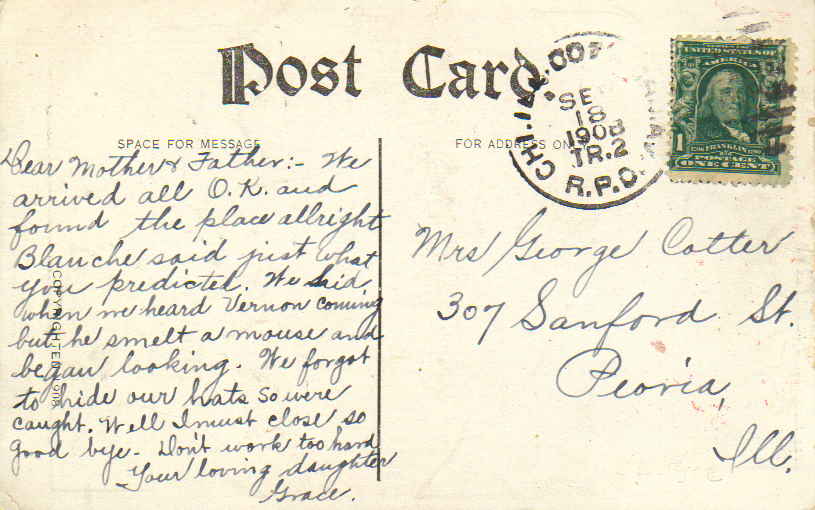 Post Card
SPACE FOR MESSAGE
FOR ADDRESS ONLY
Dear Mother & Father:- We
arrived all O.K. and
found the place allright
Blanche said just what
you predicted. We hid,
when we heard Vernon coming
but he smelt a mouse and
began looking. We forgot
to hide our hats so were
caught. Well I must close so
good bye- Don't work too hard
Your loving daughter
Grace.
SE
18
1908
TR.2
R.P.O.
UNITED STATES OF
AMERICA
1
FRANKLIN
POSTAGE
ONE CENT
Mrs George Cotter
307 Sanford St.
Peoria,
Ill.